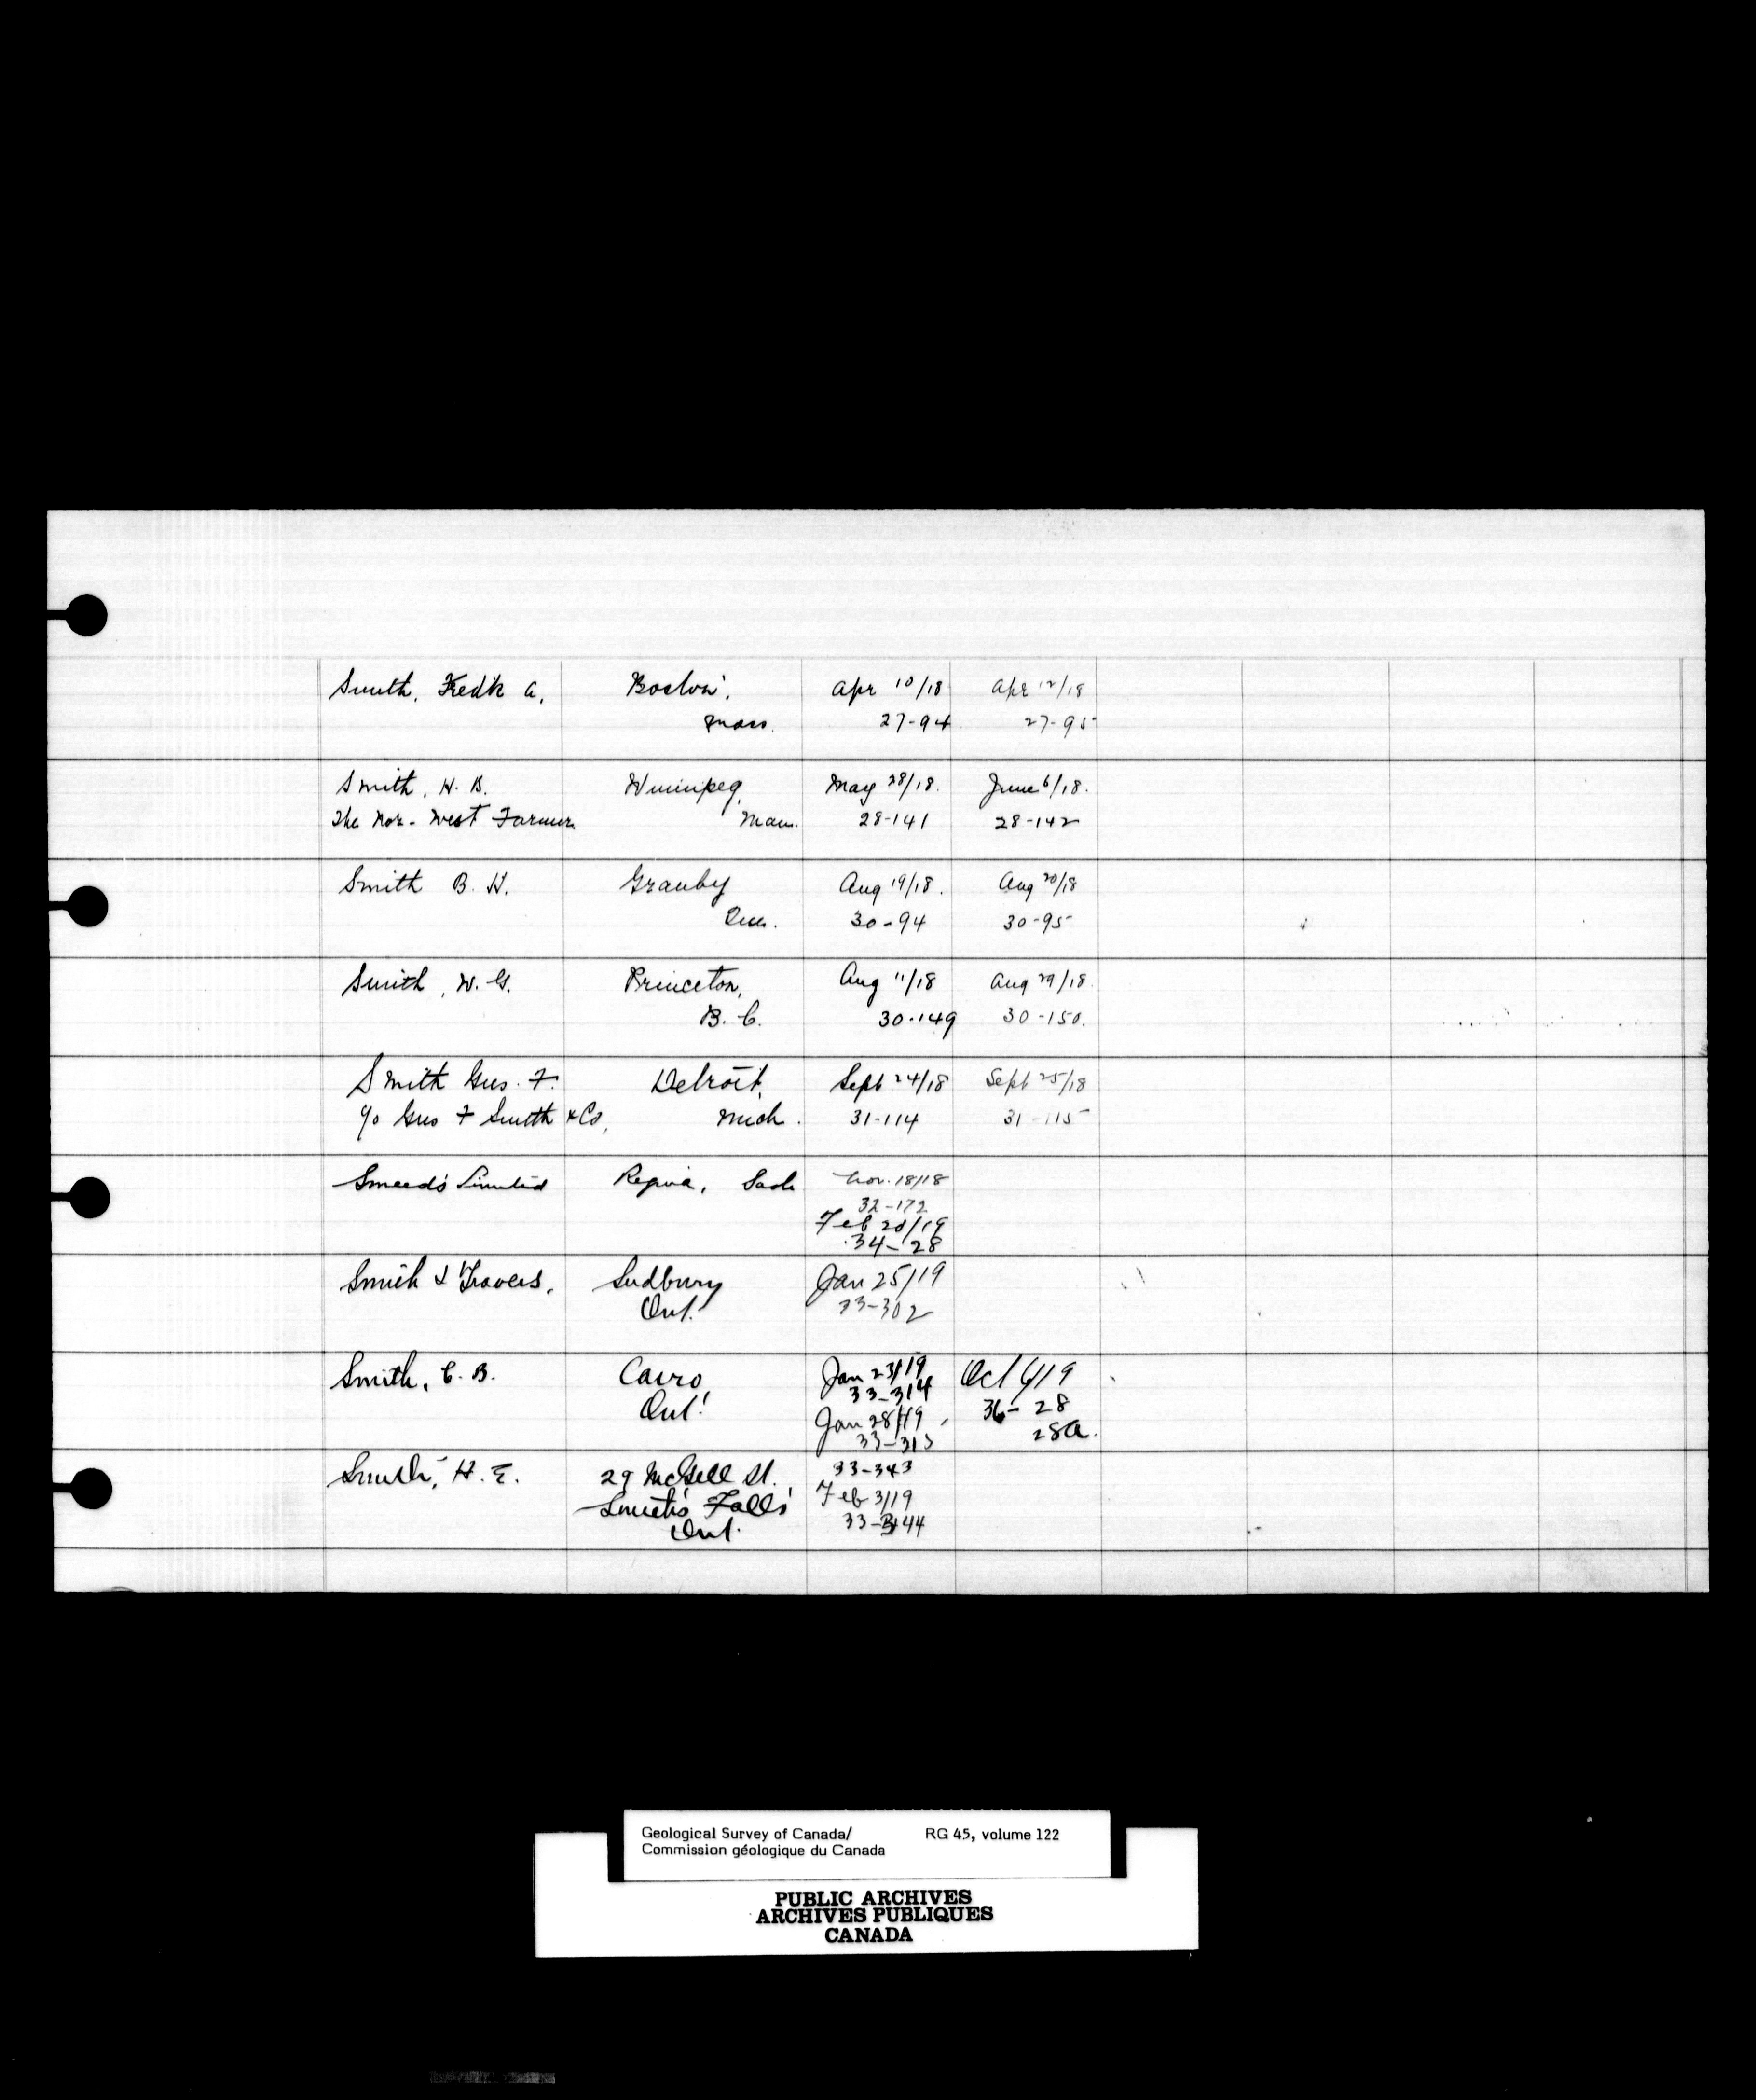 Smith, Fredk A. Boston, Apr 10/18 Apr 12/18
Mass. 27-94 27-95
Smith, H. B. Winnipeg, May 28/18. June 6/18.
The Nor-West Farmer Man. 28-141 28-142
Smith B. H. Granby Aug 19/18. Aug 20/18
Que. 30-94 30-95
Smith, W. G. Princeton, Aug 11/18 Aug 29/18.
B. C. 30-149 30-150.
Smith Gus. F. Detroit, Sept 24/18 Sept 25/18
c/o Gus F Smith & Co, Mich. 31-114 31-115
Smeed's Limited Regina, Sask Nov. 18/18
32-172
Feb 20/19
34-28
Smith & Travers, Sudbury Jan 25/19
Ont. 33-302
Smith, C. B. Cairo Jan 23/19 Oct 6/19
Ont. 33-314 36-28
Jan 28/19 28a.
33-315
Smith, H. E. 29 McGill St. 33-343
Smith's Falls Feb 3/19
Ont. 33-344
Geological Survey of Canada/ RG 45, volume 122
Commission géologique du Canada
PUBLIC ARCHIVES
ARCHIVES PUBLIQUES
CANADA